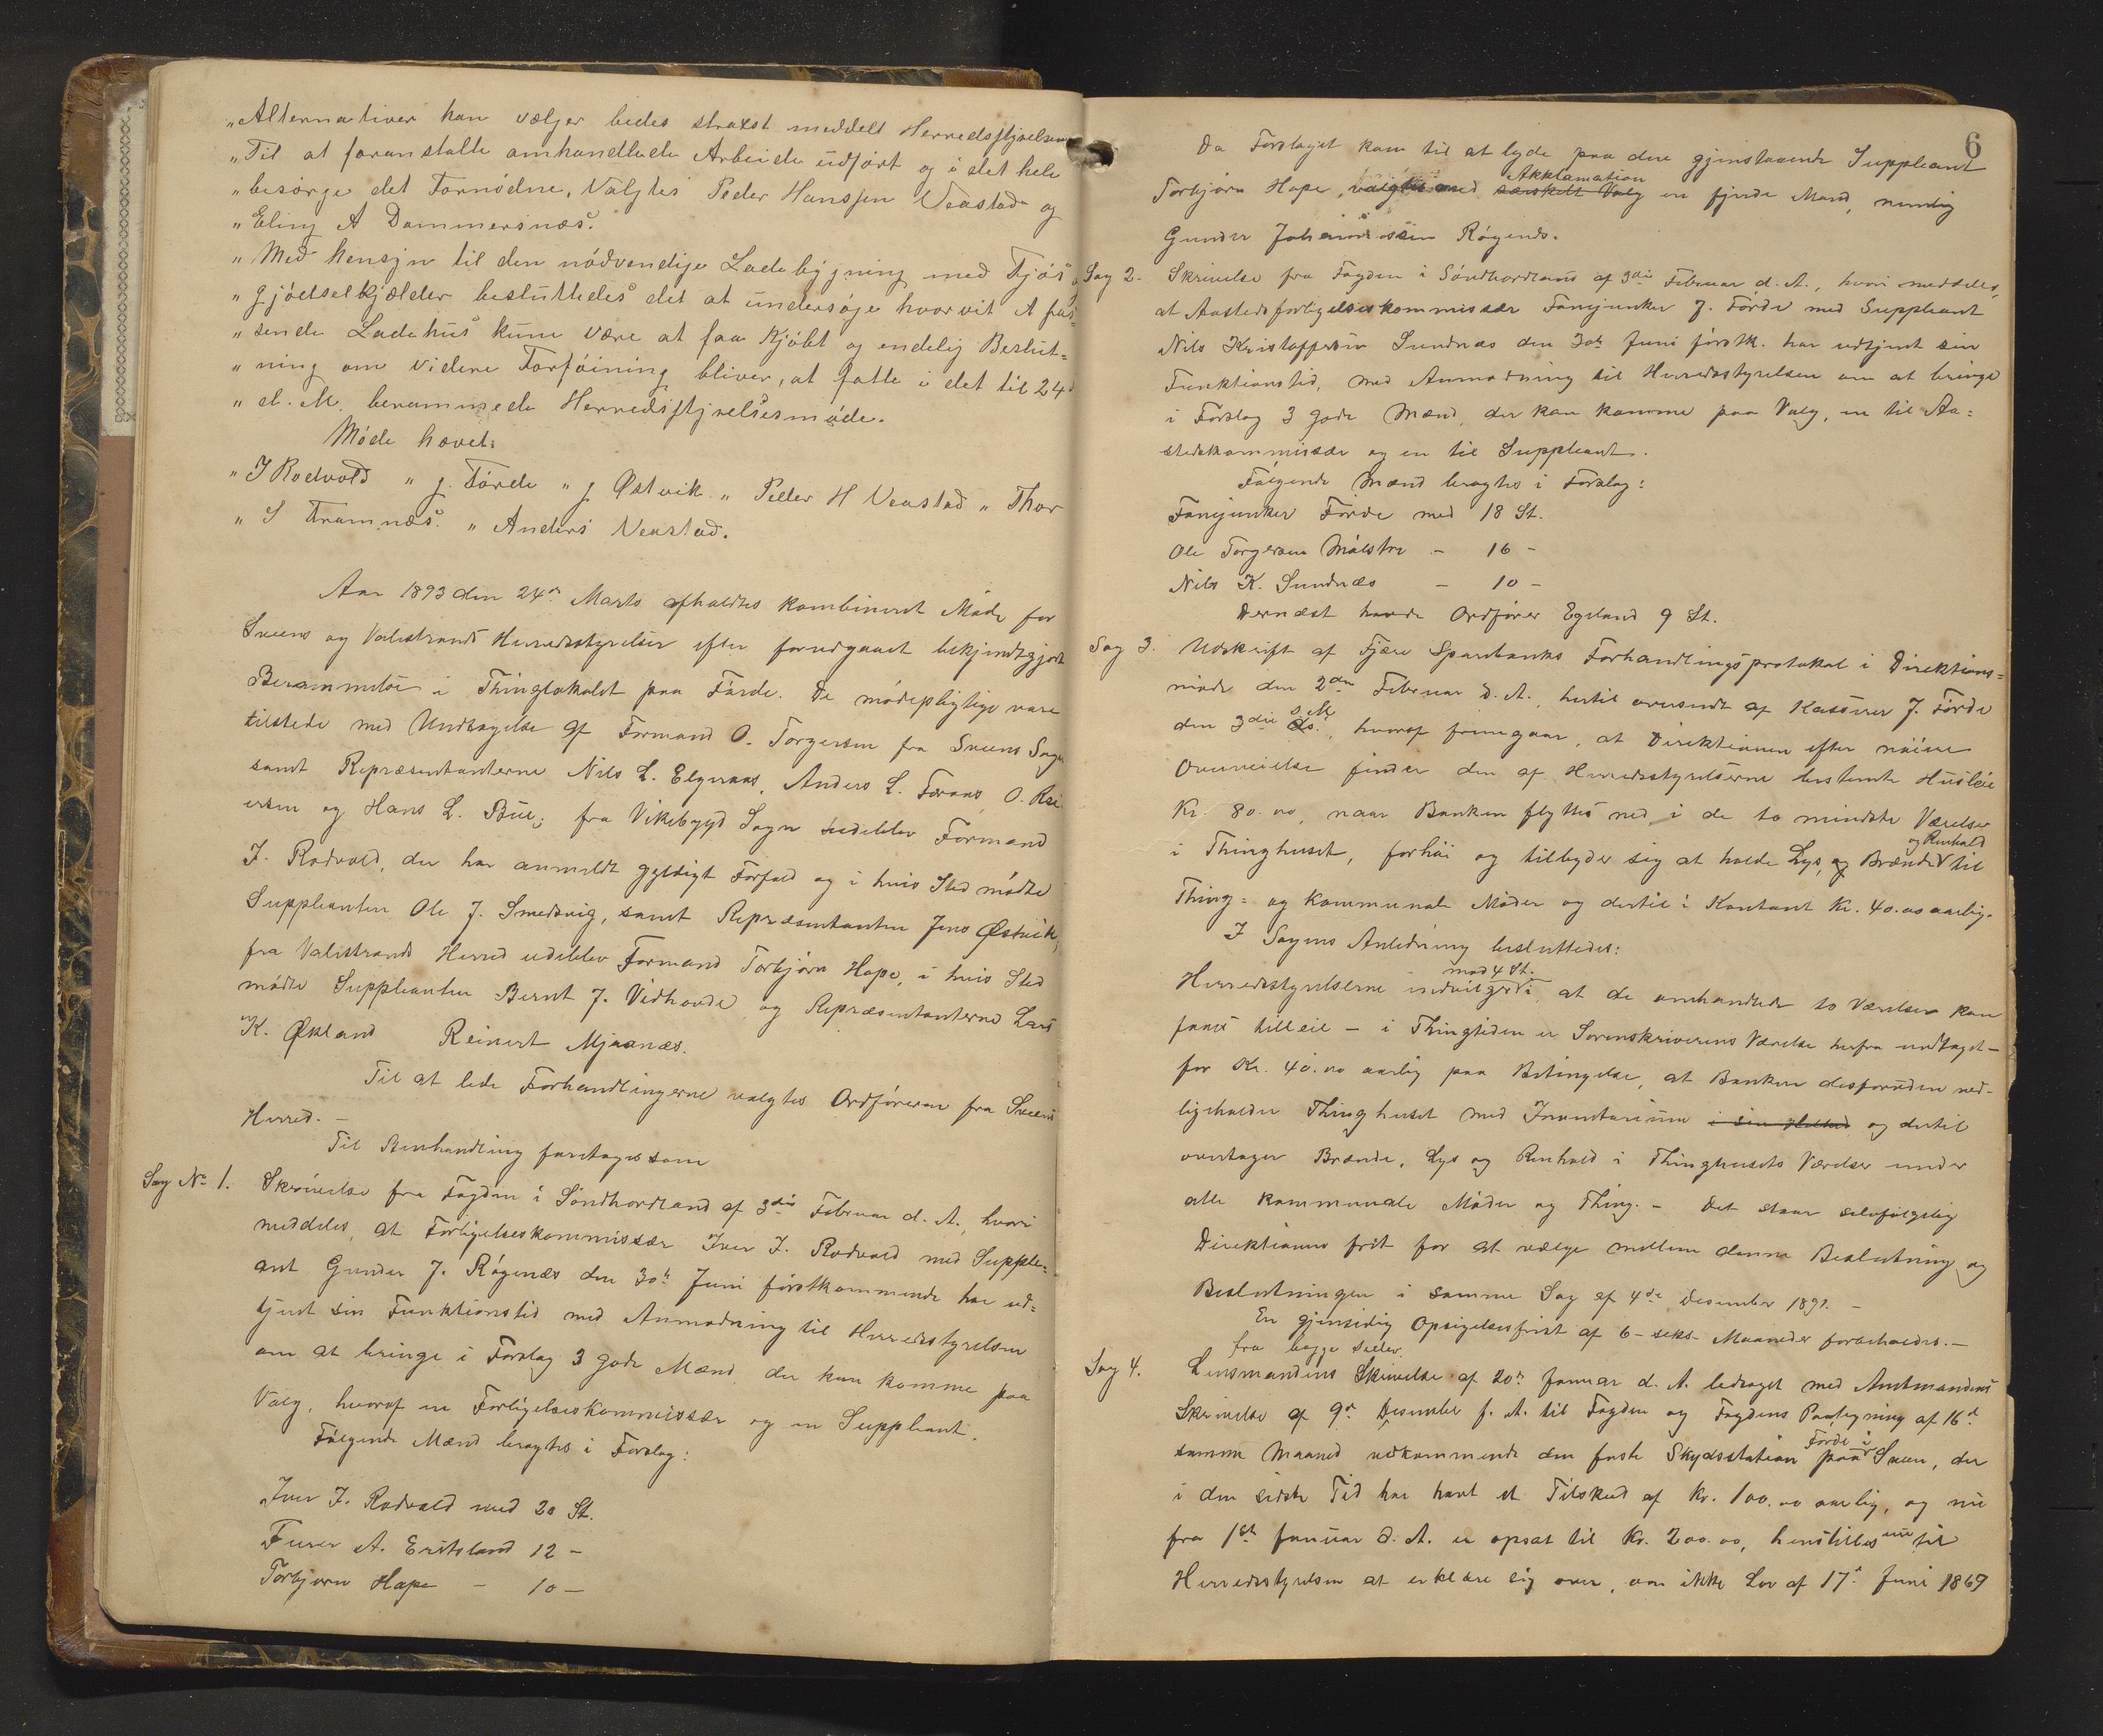 „Alternativer han vælger bedes straxst meddelt Herredsstyrelsen
„Til at foranstalte omhandlede Arbeide udført og i det hele
„besørge det Fornødne, Valgtes Peder Hanssen Veastad og
„Eling A Dommersnæs.
„Med hensyn til den nødvendige Ladebygning med Fjøs
„gjødselkjælder besluttedes det at undersøge hvorvit A pas=
„sende Ladehus kune være at faa Kjøbt og endelig Beslut=
„ning om videre Forføining bliver, at fatte i det til 24d
„d. M. berammede Herredsstyrelsesmøde.
Møde hævet.
„I Rodvold „ J. Førde „ J Østvik „ Peder H Veastad „ Thor
„S Framnæs. „ Anders Veastad.
Aar 1893 den 24de Marts afholdtes kombineret Møde for
Sveens og Valestrands Herredsstyrelser efter forudgaaet bekjendtgjort
Berammelse i Thinglokalet paa Førde. De mødepligtige vare
tilstede med Undtagelse af Formand O. Torgersen fra Sveens Sogn
samt Repræsentanterne Nils L. Elgenaas, Anders L. Foraas, O. Rei
ersen og Hans L. Bue; fra Vikebygd Sogn udeblev Formand
I. Rodvold, der har anmeldt gyldigt Forfald og i hvis Sted mødte
Suppleanten Ole J. Smedsvig, samt Repræsentanten Jens Østvik,
fra Valestrands Herred udeblev Formand Torbjørn Hope, i hvis Sted
mødte Suppleanten Bernt J. Vidhovde og Repræsentanterne Lars
K. Økland Reinert Mjaanæs.
Til at lede Forhandlingerne valgtes Ordføreren fra Sveens
Herred. –
Til Behandling foretoges som
Sag No 1. Skrivelse fra Fogden i Søndhordland af 3die Februar d. A., hvori
meddeles, at Forligelseskommissær Iver I. Rodvold med Supple=
ant Gunder J. Røgenæs den 30te Juni førstkommende har ud=
tjent sin Funktionstid med Anmodning til Herredsstyrelsen
om at bringe i Forslag 3 gode Mænd, der kan komme paa
Valg, hvoraf en Forligelseskommissær og en Suppleant.
Følgende Mænd bragtes i Forslag:
Iver I. Rodvold med 20 St.
A. Eritsland 12 –
Torbjørn Hope – 10 –
6
Da Forslaget kom til at lyde paa den gjenstaaende Suppleant
Akklamation
Torbjørn Hope, valgtes med særskilt Valg en fjerde Mand, nemlig
Gunder Johannessen Røgenæs.
Sag 2. Skrivelse fra Fogden i Søndhordland af 3die Februar d. A., hvori meddeles,
at Aastedsforligelseskommissær Fanejunker J. Førde med Suppleant
Nils Kristoffersen Sundnæs den 30te Juni førstk. har udtjent sin
Funktionstid, med Anmodning til Herredsstyrelsen om at bringe
i Forslag 3 gode Mænd, der kan komme paa Valg, en til Aa=
stedskommissær og en til Suppleant.
Følgende Mænd bragtes i Forslag:
Fanejunker Førde med 18 St.
Ole Torgersen Mølstre – 16 –
Nils K. Sundnæs – 10 –
Dernæst havde Ordfører Egeland 9 St.
Sag 3. Udskrift af Fjære Sparebanks Forhandlingsprotokol i Direktions=
møde den 2den Februar d. A., hertil oversendt af Kasserer J. Førde
s. M.
den 3die ds., hvoraf fremgaar, at Direktionen efter nøiere
Overveielse finder den af Herredsstyrelserne bestemte Husleie
Kr. 80.00, naar Banken flyttes ned i de to mindste Værelser
og Renhold
i Thinghuset, forhøi og tilbyder sig at holde Lys, og Brænde til
Thing= og kommunale Møder og dertil i Kontant Kr. 40.00 aarlig.
I Sagens Anledning besluttedes:
mod 4 St.
Herredsstyrelserne indvilgede i, at de omhandlede to Værelser kan
faaes tilleie – i Thingtiden er Sorenskriverens Værelse herfra undtaget –
for Kr. 40.00 aarlig paa Betingelse, at Banken desforuden ved-
ligeholder Thinghuset med Inventarium i sin Helhed og dertil
overtager Brænde, Lys og Renhold i Thinghusets Værelser under
alle kommunale Møder og Thing. – Det staar selvfølgelig
Direktionen frit for at vælge mellem denne Beslutning og
Beslutningen i samme Sag af 4de Desember 1891. –
En gjensidig Opsigelsesfrist af 6 – seks – Maaneder forbeholdes. –
fra begge Sider.
Sag 4. Lensmandens Skrivelse af 20de Januar d. A. ledsaget med Amtmandens
Skrivelse af 9de Desember f. A. til Fogden og Fogdens Paategning af 16de
Førde i
samme Maaned vedkommende den faste Skydsstation paa Sveen, der
i den sidste Tid har havt et Tilskud af Kr. 100.00 aarlig, og nu
fra 1ste Januar d. A. er opsat til Kr. 200.00, henstilles nu til
Herredsstyrelsen at erklære sig over, om ikke Lov af 17de Juni 1869